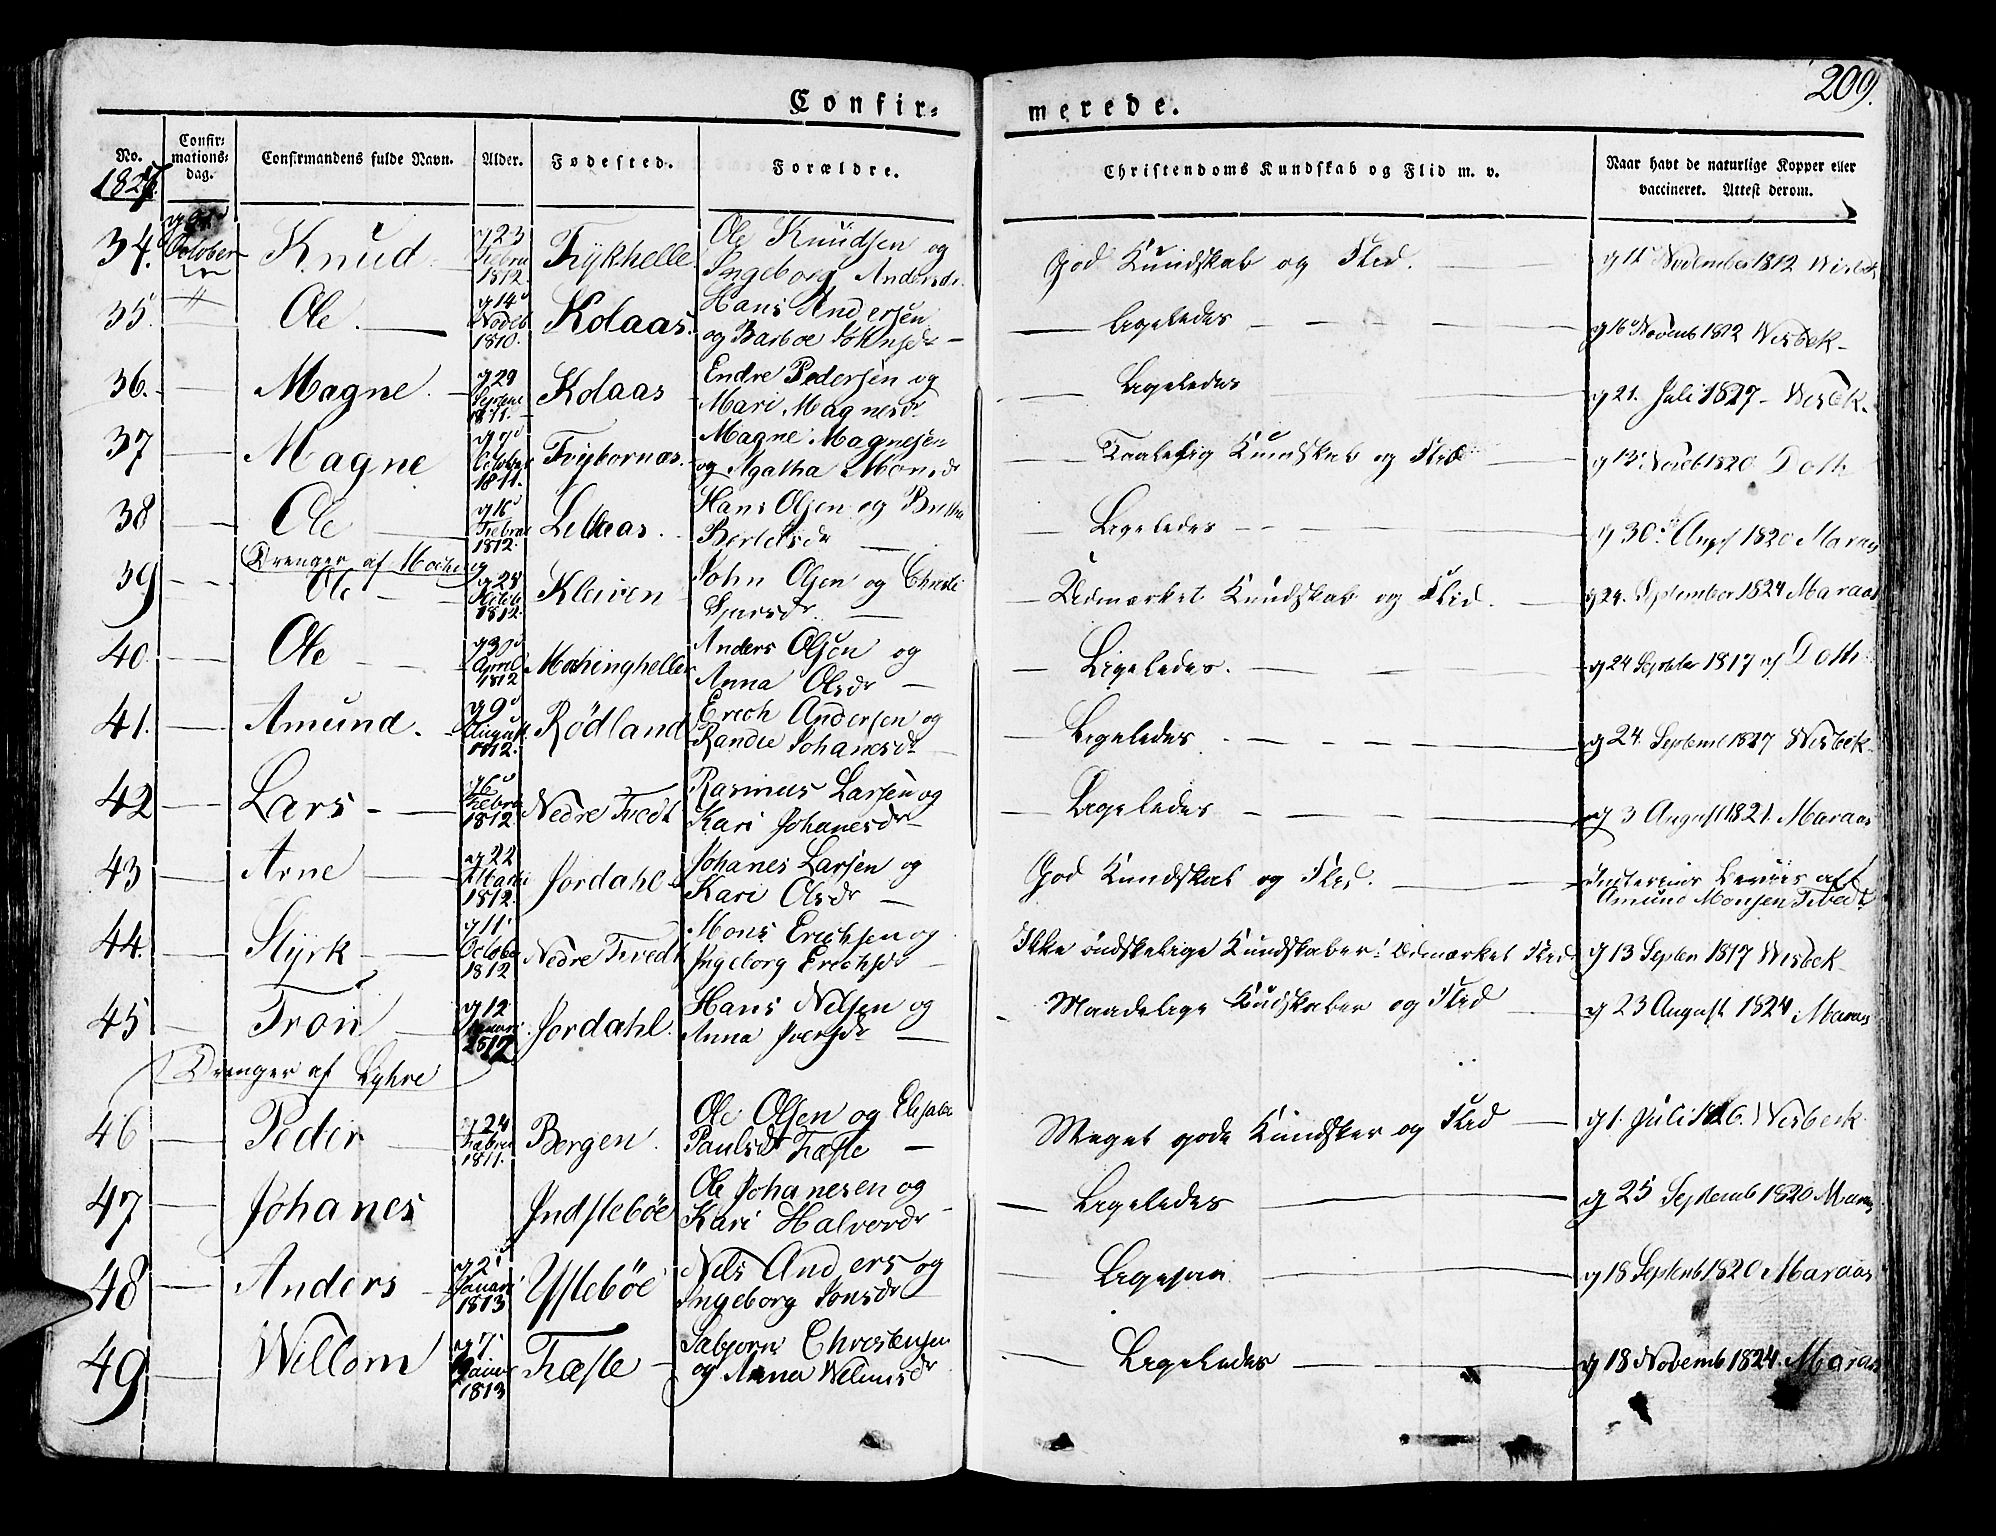 209.
Confir=
merede.
No.
Confir=
mations=
dag.
Confirmandens fulde Navn.
Alder.
Fødested.
Forældre.
Christendoms Kundskab og Flid m. v.
Naar havt de naturlige Kopper eller
vaccineret. Attest derom.
1827.
34. October Knud 23 Febru 1812. Ole Knudsen og
Ingeborg Andersdr
God Kundskab og Flid. 11 November 1812 Wisbek
35. Ole. 14 Noveb 1810. Kolaas. Hans Andersen
og Barboe Johnsdr
Ligeledes 16 Novemb 1812 Wisbek
36. Magne. 29 Septem 1811. Kolaas Endre Pedersen og
Mari Magnesdr
Ligeledes 21. Juli 1827 Wisbek.
37 Magne October 1811. Magne Magnesen
og Agatha Monsdr
Taalelig Kundskab og Flid 13 Noveb 1820 Doth
38 Ole 16 Febru 1812. Hans Olsen og
Ligeledes 30 Aug 1820 Maraas
Drenger af
39 Ole 1812. Kleiven John Olsen og
Udmærket Kundskab og Flid. 24. September 1824 Maraas
40. Ole 30 April 1812 Mochinghelle Anders Olsen og
Anna Olsdr
Ligeledes. 24 September 1817 af Doth
41. Amund. 9 August 1812. Rødland Erech Andersen og
Randie Johanesdr
Ligeledes 24. Septemb 1827 Wisbek
42 Lars 6 Febru 1812 Nedre Tvedt Rasmus Larsen og
Kari Johanesdr
Ligeledes 3 August 1821. Maraas
43 Arne 22 Martii 1812. Jordahl Johanes Larsen og
Kari Olsdr
God Kundskab og Flid. af
Amund Monsen Tvedt
44. Styrk 11 Octobe 1812 Nedre Tvedt Mons Erechsen og
Ingeborg Erechsdr
Ikke öndskelige Kundskaber: Udmærket Flid 13 Septem 1817 Wisbek
45 Tron 12 Januari 1812 Jordahl. Hans Nelsen og
Anna Iversdr
Maadelige Kundskaber og Flid 23 August 1824 Maraas
Drenger af Lykre
46 Peder 24 Febru 1811. Bergen. Ole Olsen og Elisabe
Paulsdr Tæsle
Meget gode Kundsker og Flid 1. Juli Wisbeck
47 Johanes Indstebøe Ole Johanesen og
Kari Halvordr
Ligeledes 25 Septemb 1820 Maraas
48 Anders 2 Januari 1813 Ystebøe Nels Anders og
Ingeborg Jonsdr
Ligesaa 18 Septemb 1820 Maraas
49 Wellom 7 Januar 1813 Tæsle Sabjorn Christensen
og Anna Welumsdr
Ligeledes 18 Novemb 1824. Maraas